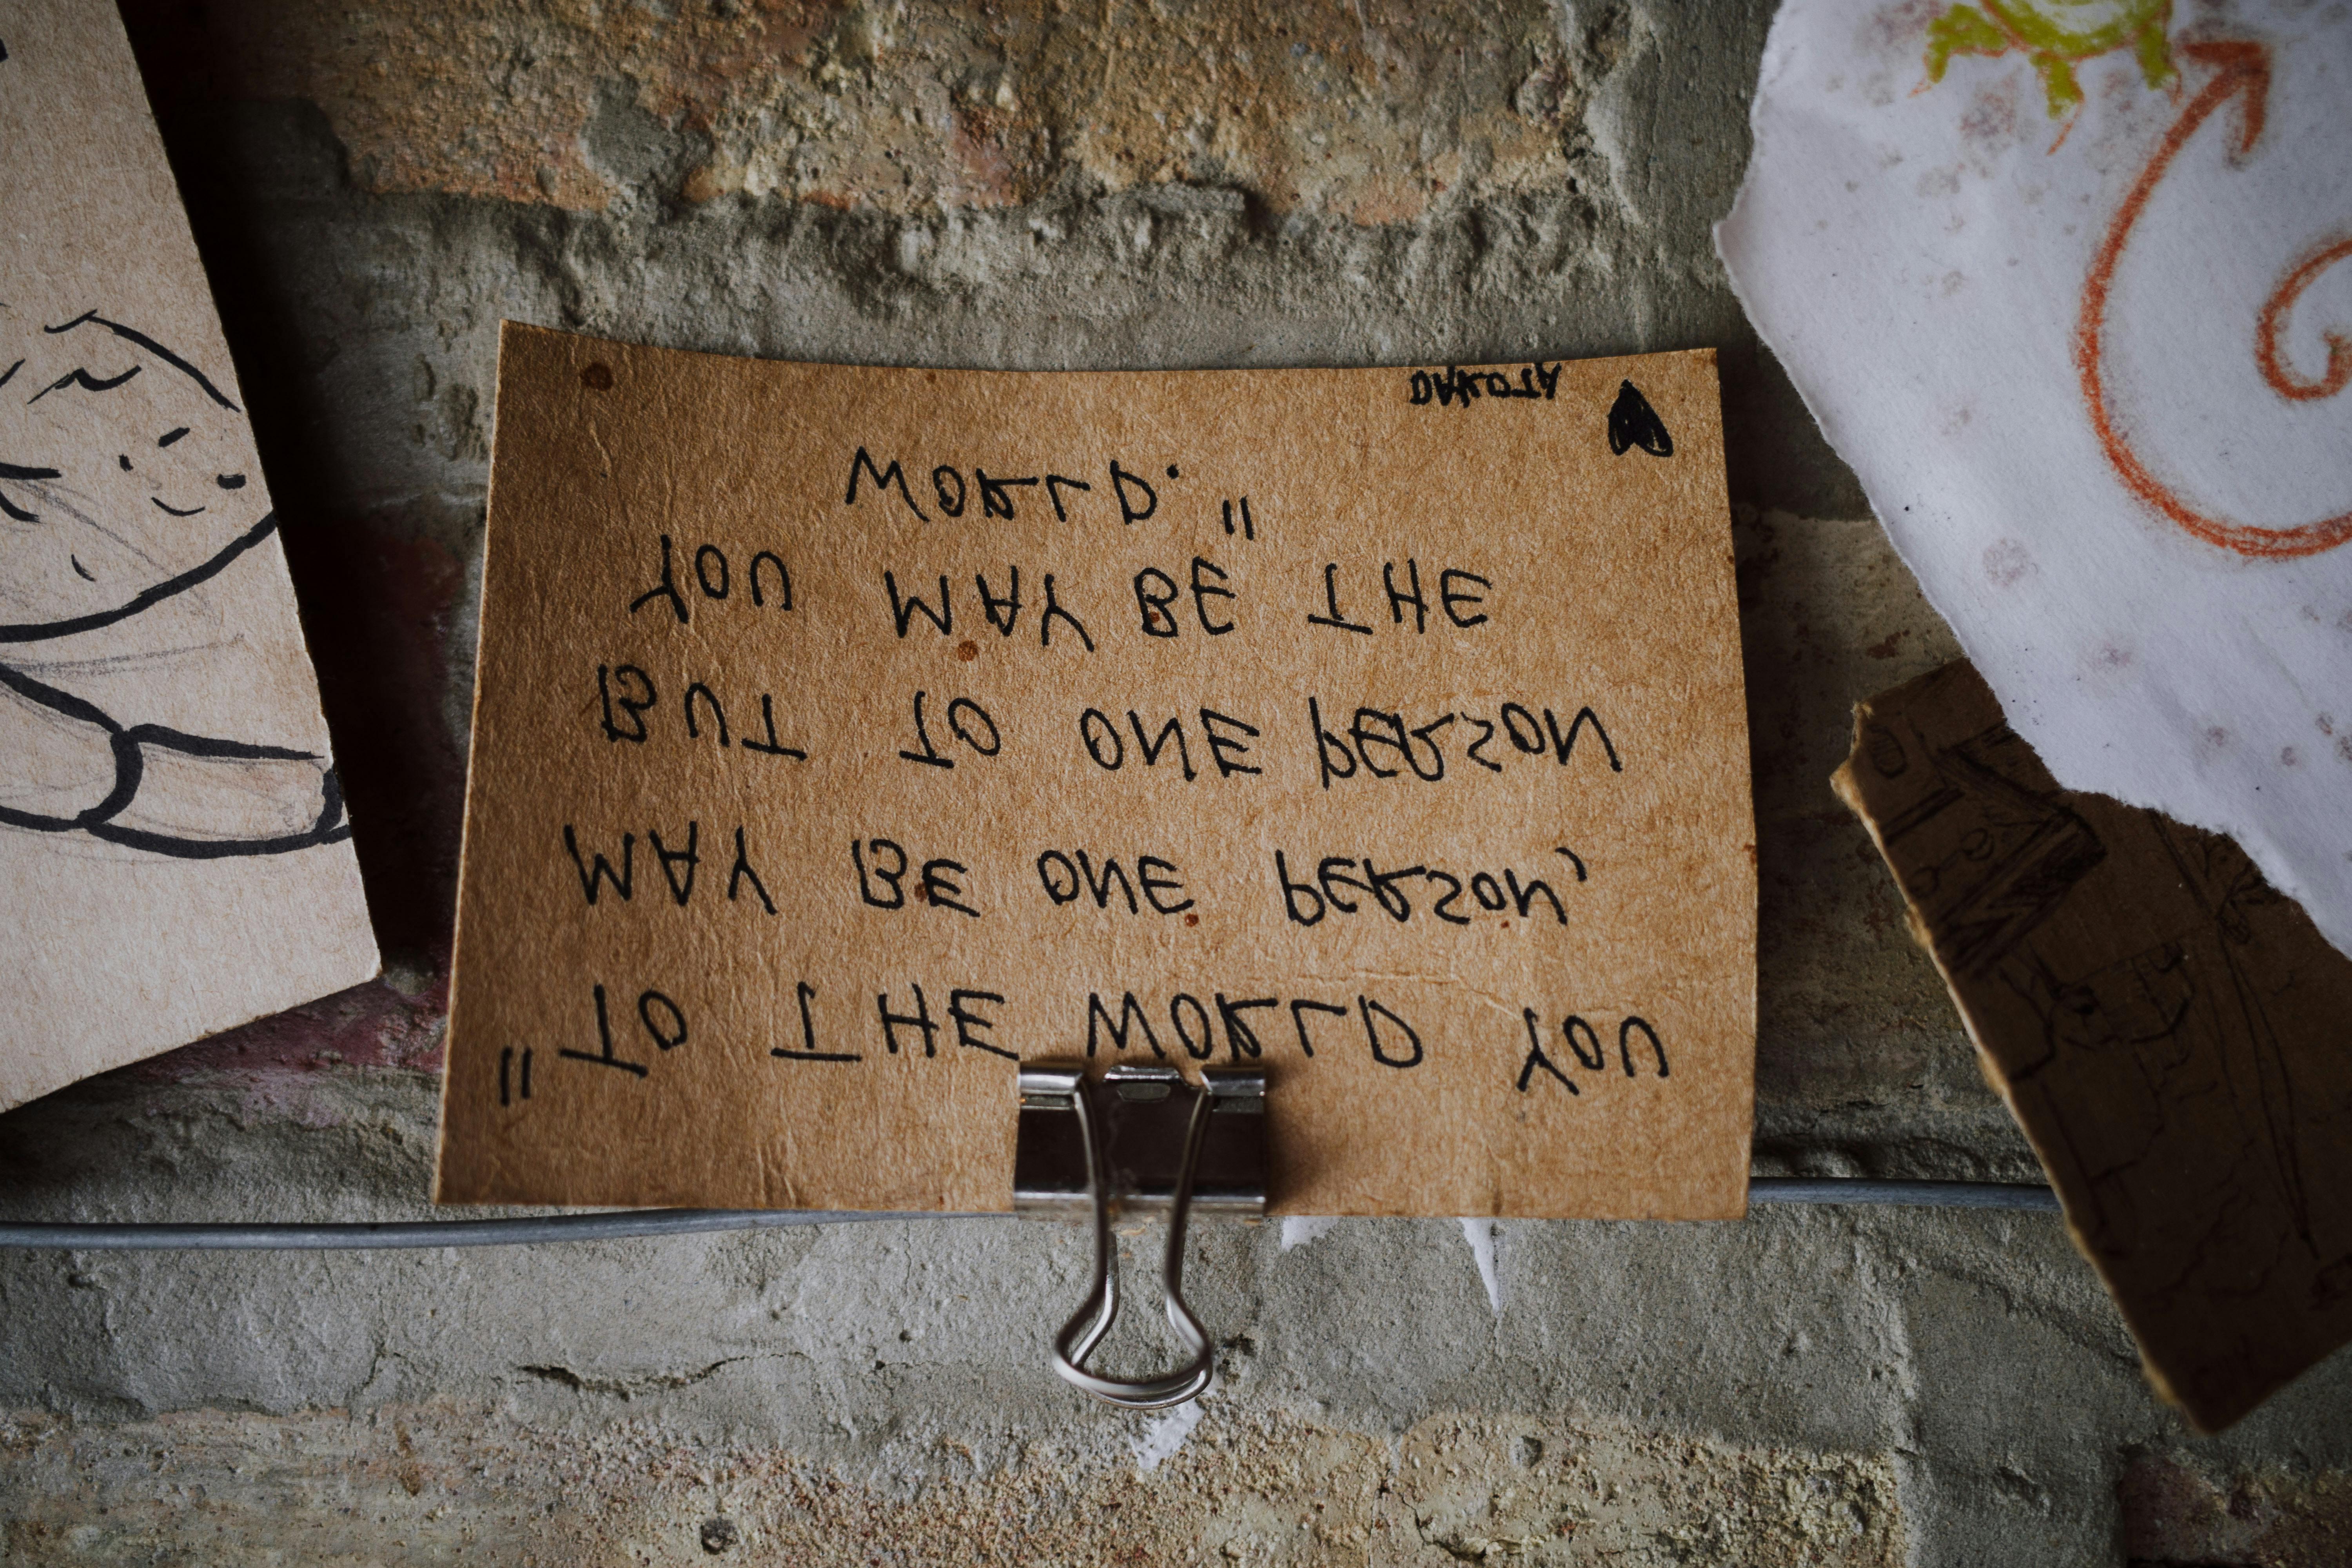 "TO THE WORLD YOU
MAY BE ONE PERSON,
BUT TO ONE PERSON
YOU MAY BE THE
WORLD."
DAKOTA